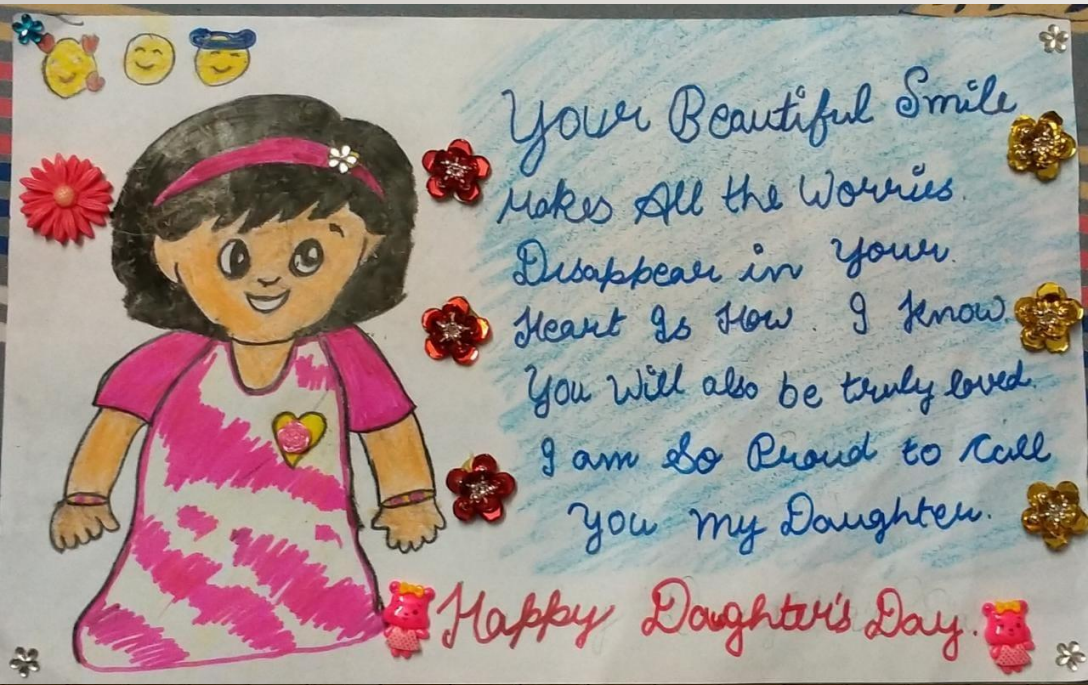 Your Beautiful Smile
Makes All the Worries.
Disappear in Your.
Heart Is How. I Know.
You Will also be truly loved.
I am So Proud to Call
You my Daughter.
Happy Daughter's Day.